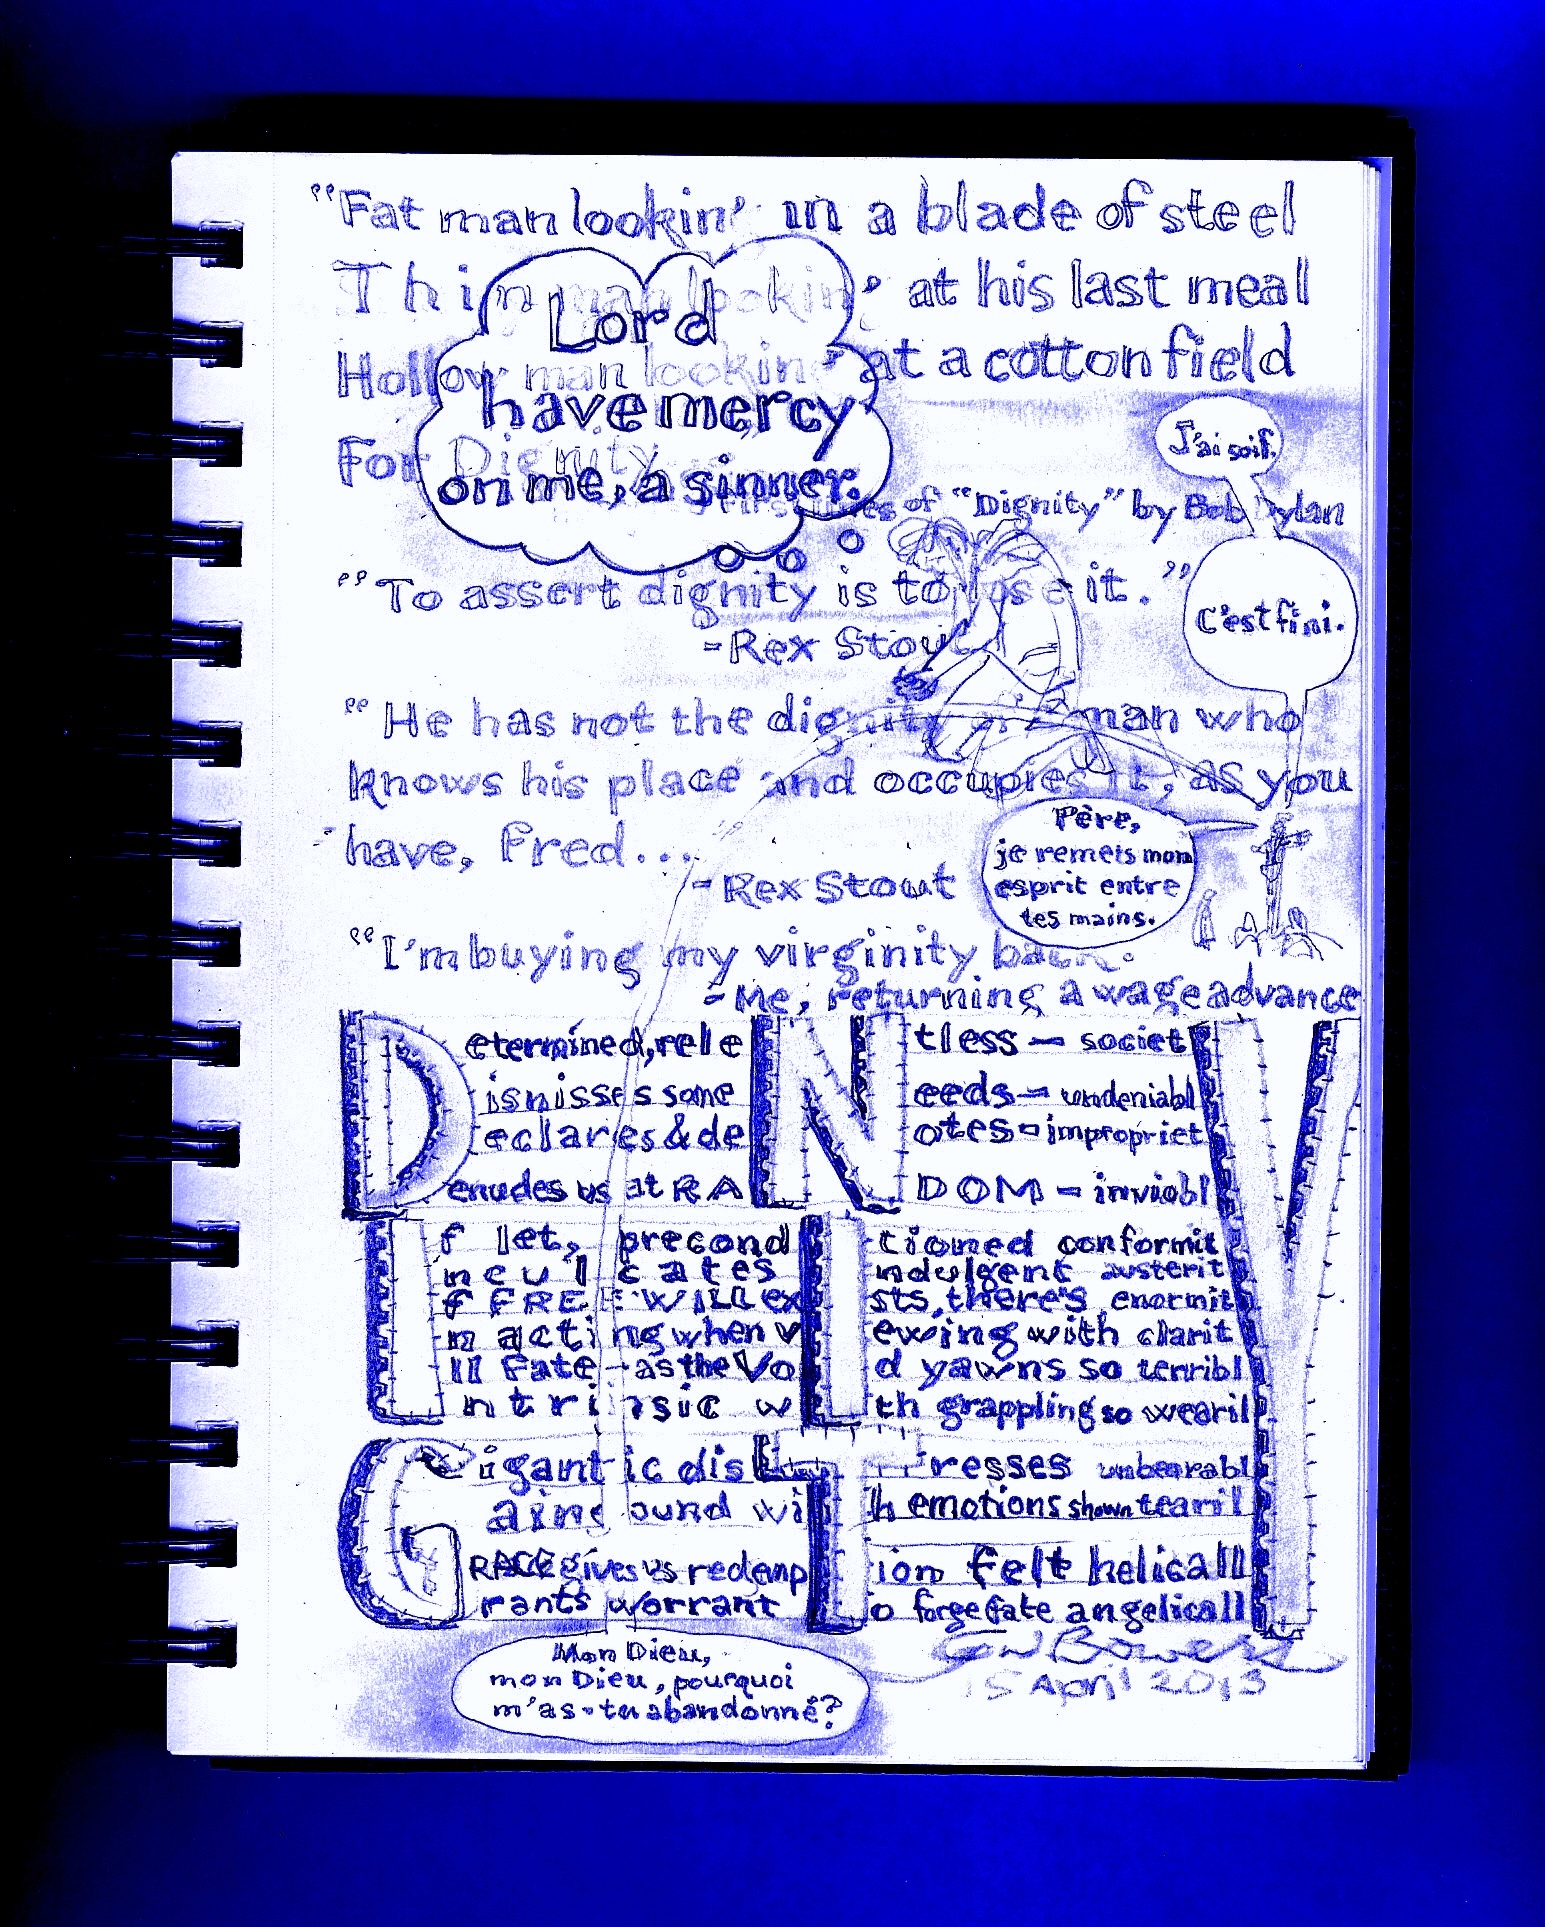 "Fat man lookin' in a blade of steel
Thin man lookin' at his last meal
Hollow man lookin' at a cotton field
For Dignity
Lord
have mercy
on me, a sinner.
J'ai soif.
of "Dignity" by Bob Dylan
"To assert dignity is to lose it."
-Rex Stout
C'est fini.
"He has not the dignity of a man who
knows his place and occupies it, as you
have, Fred...
-Rex Stout
Père,
je remets mon
esprit entre
tes mains.
"I'm buying my virginity back.
-Me, returning a wage advance
Determined, relentless - society
Dismisses some needs - undeniably
Declares & denotes - impropriety
Denudes us at RANDOM - inviably
If let, preconditioned conformity
Inculcates indulgent austerity
If FREE WILL exists, there's enormity
In acting when viewing with clarity
Ill Fate - as the Void yawns so terribly
Intrinsic with grappling so wearily
Gigantic distresses unbearably
Gains ground with emotions shown tearily
GRACE gives us redemption felt helically
Grants warrant to forge fate angelically
Tom Bowers
15 April 2013
Mon Dieu,
mon Dieu, pourquoi
m'as-tu abandonné?